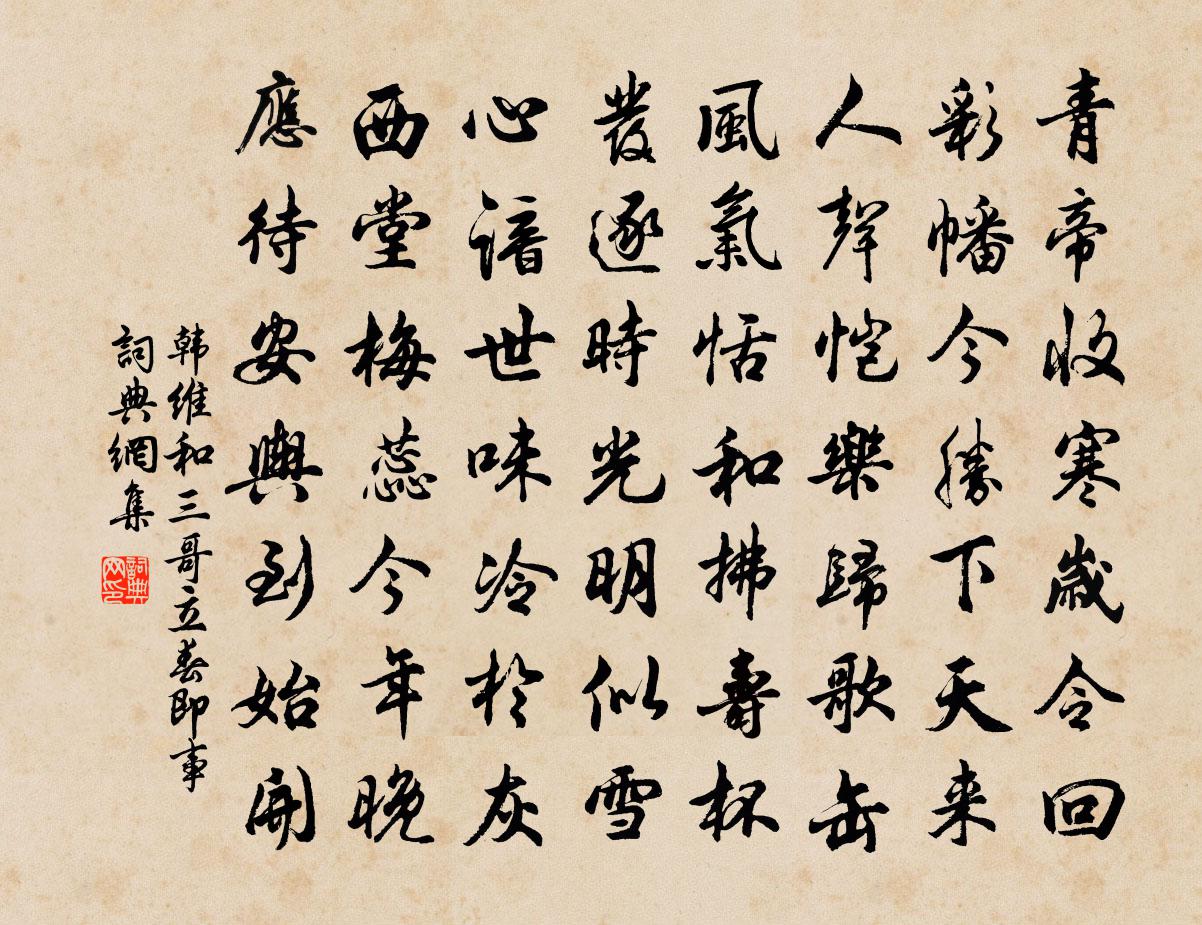 青帝收寒歲令回
彩幡今勝下天来
人聲愷樂歸歌缶
風氣恬和拂壽杯
髮逐時光明似雪
心諳世味冷於灰
西堂梅蕊今年晚
應待安輿到始開
韩維和三哥立春即事
詞典網集
詞典网印